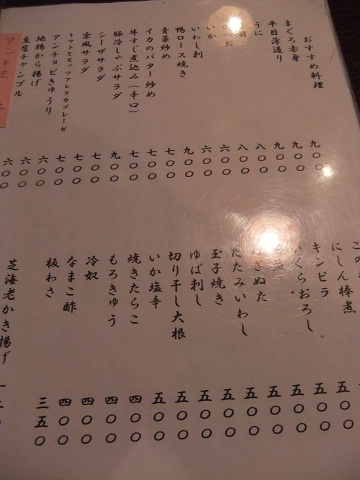 おすすめ料理
まぐろ赤身
平目薄造り 九〇〇
うに 九〇〇
九〇〇
八〇〇
いか 八〇〇
いわし刺 八〇〇
鴨ロース焼き 七〇〇
青菜炒め 七〇〇
イカのバター炒め 七〇〇
牛すじ煮込み(辛口) 七〇〇
豚冷しゃぶサラダ 九〇〇
シーザサラダ 七〇〇
京風サラダ 七〇〇
トマトとモッツァレラカプレーゼ 七〇〇
アンチョビきゅうり 六〇〇
地鶏から揚げ 六〇〇
豆腐チャンプル 六〇〇
アンキモ
にしん棒煮
キンピラ 五〇〇
いくらおろし 五〇〇
五〇〇
ぬた 五〇〇
たたみいわし 五〇〇
玉子焼き 五〇〇
ゆば刺し 五〇〇
切り干し大根 五〇〇
いか塩辛 五〇〇
焼きたらこ 四〇〇
もろきゅう 四〇〇
冷奴 四〇〇
なまこ酢 四〇〇
板わさ 三五〇
芝海老かき揚げ